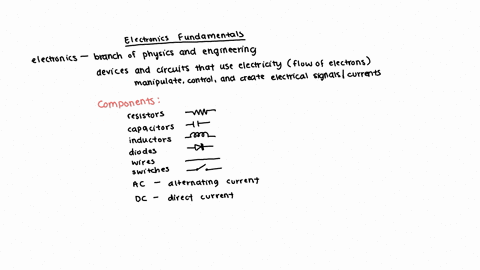 Electronics Fundamentals
electronics — branch of physics and engineering
devices and circuits that use electricity (flow of electrons)
manipulate, control, and create electrical signals/currents
Components:
resistors
capacitors
inductors
diodes
wires
switches
AC — alternating current
DC — direct current